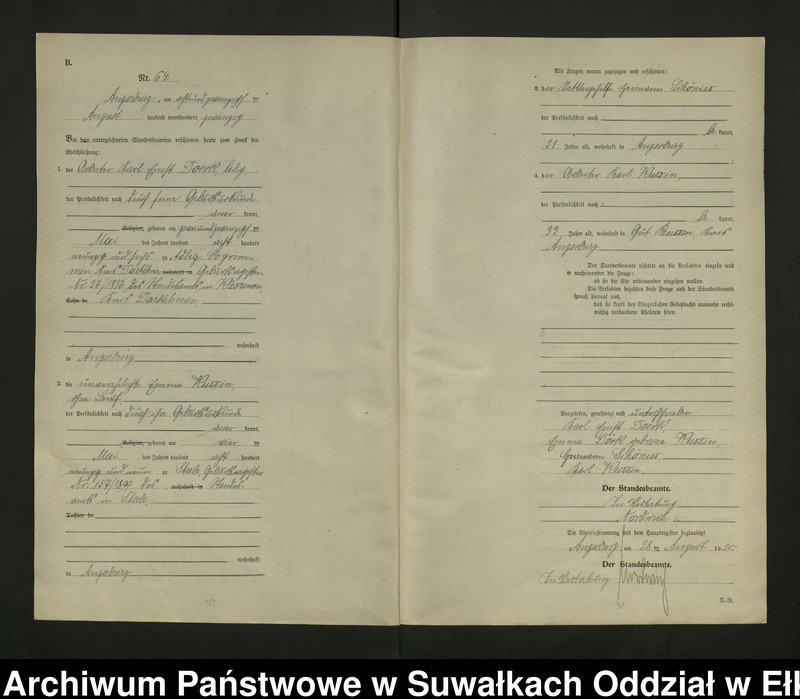 B.
Nr. 64
Angerburg, am achtundzwanzigsten
August tausend neunhundert zwanzig
Vor dem unterzeichneten Standesbeamten erschienen heute zum Zweck der
Eheschließung:
1. der Arbeiter Karl Ernst Doerk, ledig,
der Persönlichkeit nach durch seine Geburtsurkunde
aner kannt,
Religion, geboren am zweiundzwanzigsten
Mai des Jahres tausend acht hundert
neunzig und sechs zu Adlig
Kreis Darkehmen, wohnhaft in Geburtsregister
des Standesamts in
Sohn de Kreis Darkehmen,
wohnhaft
in Angerburg
2. die unverehelichte Emma Kussin,
ohne Beruf,
der Persönlichkeit nach durch ihre Geburtsurkunde
aner kannt,
Religion, geboren am vier
Mai des Jahres tausend acht hundert
neunzig und neun zu Geburtsregister
des wohnhaft in Standes-
amts in
Tochter de
wohnhaft
in Angerburg
30
Als Zeugen waren zugezogen und erschienen:
3. der Hermann Schönies
der Persönlichkeit nach
be kannt,
21 Jahre alt, wohnhaft in Angerburg
;
4. der Arbeiter Karl Kussin,
der Persönlichkeit nach
be kannt,
Jahre alt, wohnhaft in Gut Kreis
Angerburg
Der Standesbeamte richtete an die Verlobten einzeln und
nacheinander die Frage:
ob sie die Ehe miteinander eingehen wollen.
Die Verlobten bejahten diese Frage und der Standesbeamte
sprach hierauf aus,
daß sie kraft des Bürgerlichen Gesetzbuchs nunmehr recht-
mäßig verbundene Eheleute seien.
Vorgelesen, genehmigt und unterschrieben
Karl Ernst Doerk
Emma Dörk geborene Kussin,
Hermann Schönies
Karl Kussin
Der Standesbeamte.
In Vertretung
Die Übereinstimmung mit dem Hauptregister beglaubigt
Angerburg, am 28 ten August 1920
Der Standesbeamte.
In Vertretung
31
Archiwum Państwowe w Suwałkach Oddział w Ełk